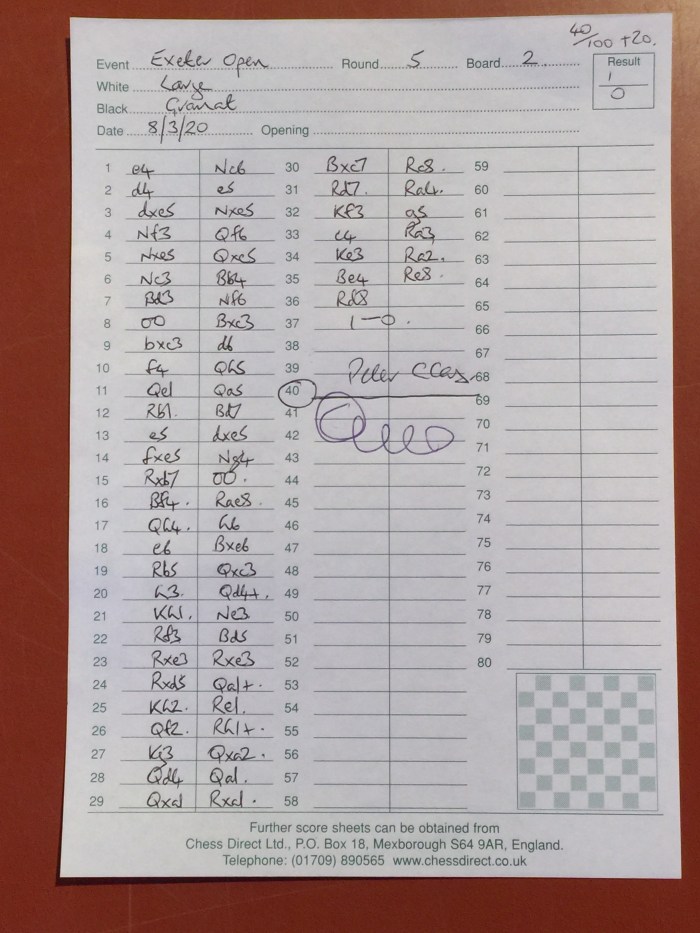 40/100 +20.
Event Exeter Open Round 5 Board 2 Result
White Large 1
Black Granat 0
Date 8/3/20 Opening
1 e4 Nc6 30 Bxc7 Rc8. 59
2 d4 e5 31 Rd7. Ra4. 60
3 dxe5 Nxe5 32 Kf3 a5 61
4 Nf3 Qf6 33 c4 Ra3 62
5 Nxe5 Qxe5 34 Ke3 Ra2. 63
6 Nc3 Bb4 35 Be4 Re8. 64
7 Bd3 Nf6 36 Rd8 65
8 00 Bxc3 37 1-0. 66
9 bxc3 d6 38 67
10 f4 Qh5 39 Peter 68
11 Qe1 Qa5 40 69
12 Rb1. Bd7 41 70
13 e5 dxe5 42 71
14 fxe5 Ng4 43 72
15 Rxb7 00. 44 73
16 Bf4. Rae8. 45 74
17 Qh4. h6 46 75
18 e6 Bxe6 47 76
19 Rb5 Qxc3 48 77
20 h3. Qd4+. 49 78
21 Kh1. Ne3 50 79
22 Rf3 Bd5 51 80
23 Rxe3 Rxe3 52
24 Rxd5 Qa1+. 53
25 Kh2. Re1. 54
26 Qf2. Rh1+. 55
27 Kg3 Qxa2. 56
28 Qd4 Qa1. 57
29 Qxa1 Rxa1. 58
Further score sheets can be obtained from
Chess Direct Ltd., P.O. Box 18, Mexborough S64 9AR, England.
Telephone: (01709) 890565 www.chessdirect.co.uk